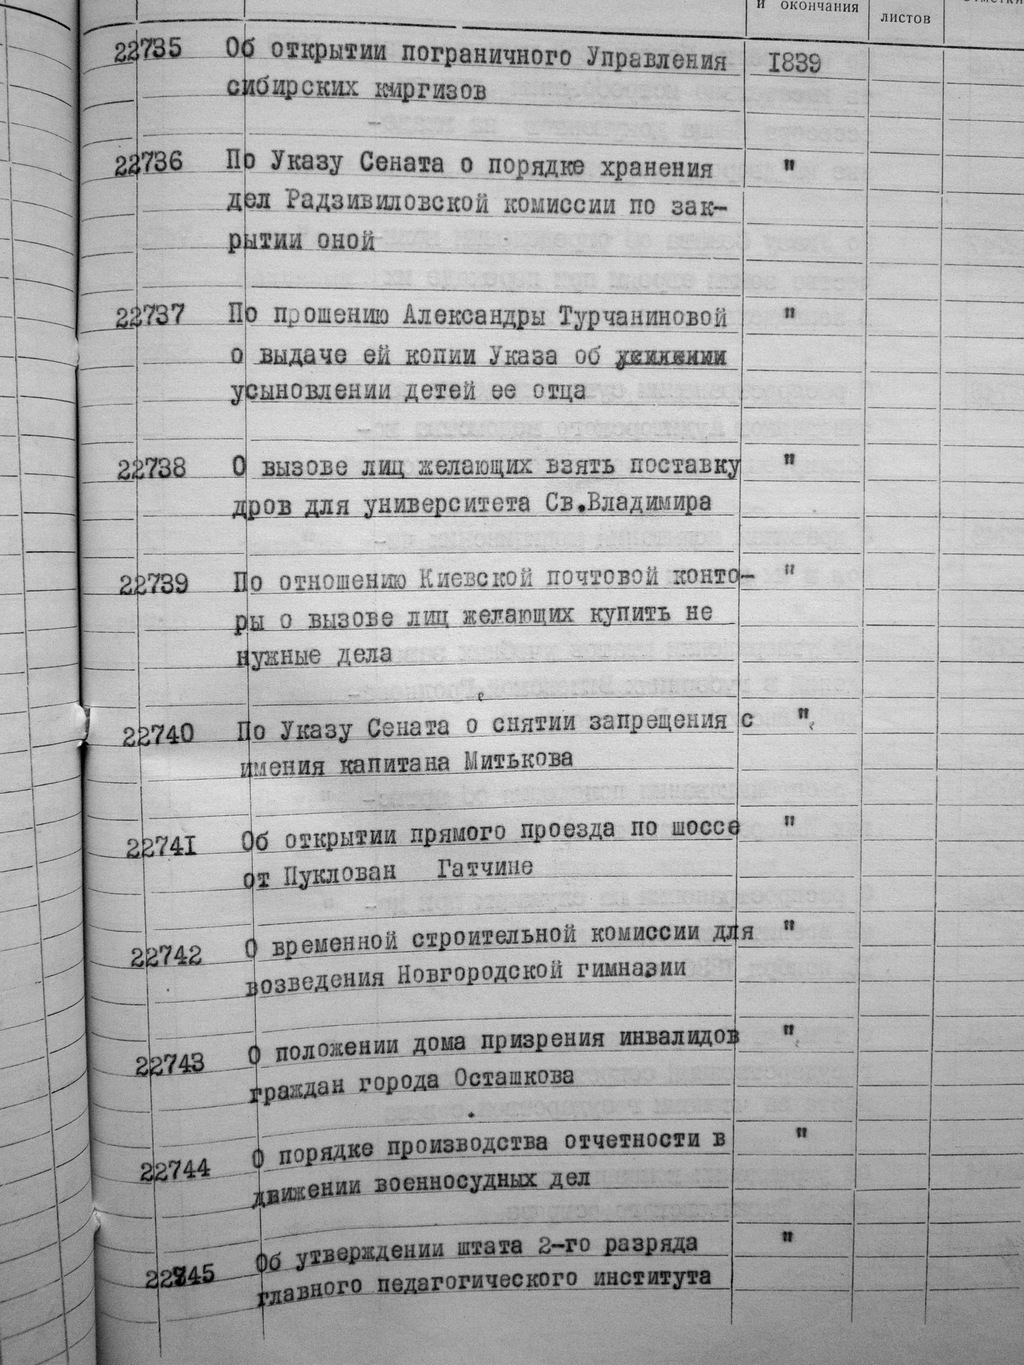 и окончания
листов
22735 Об открытии пограничного Управления 1839
сибирских киргизов
22736 По Указу Сената о порядке хранения "
дел Радзивиловской комиссии по зак-
рытии оной
22737 По прошению Александры Турчаниновой "
о выдаче ей копии Указа об
усыновлении детей ее отца
22738 О вызове лиц желающих взять поставку "
дров для университета Св.Владимира
22739 По отношению Киевской почтовой конто- "
ры о вызове лиц желающих купить не
нужные дела
22740 По Указу Сената о снятии запрещения с "
имения капитана Митькова
22741 Об открытии прямого проезда по шоссе "
от Пуклован Гатчине
22742 О временной строительной комиссии для "
возведения Новгородской гимназии
22743 О положении дома призрения инвалидов "
граждан города Осташкова
22744 О порядке производства отчетности в "
движении военносудных дел
22745 Об утверждении штата 2-го разряда "
главного педагогического института